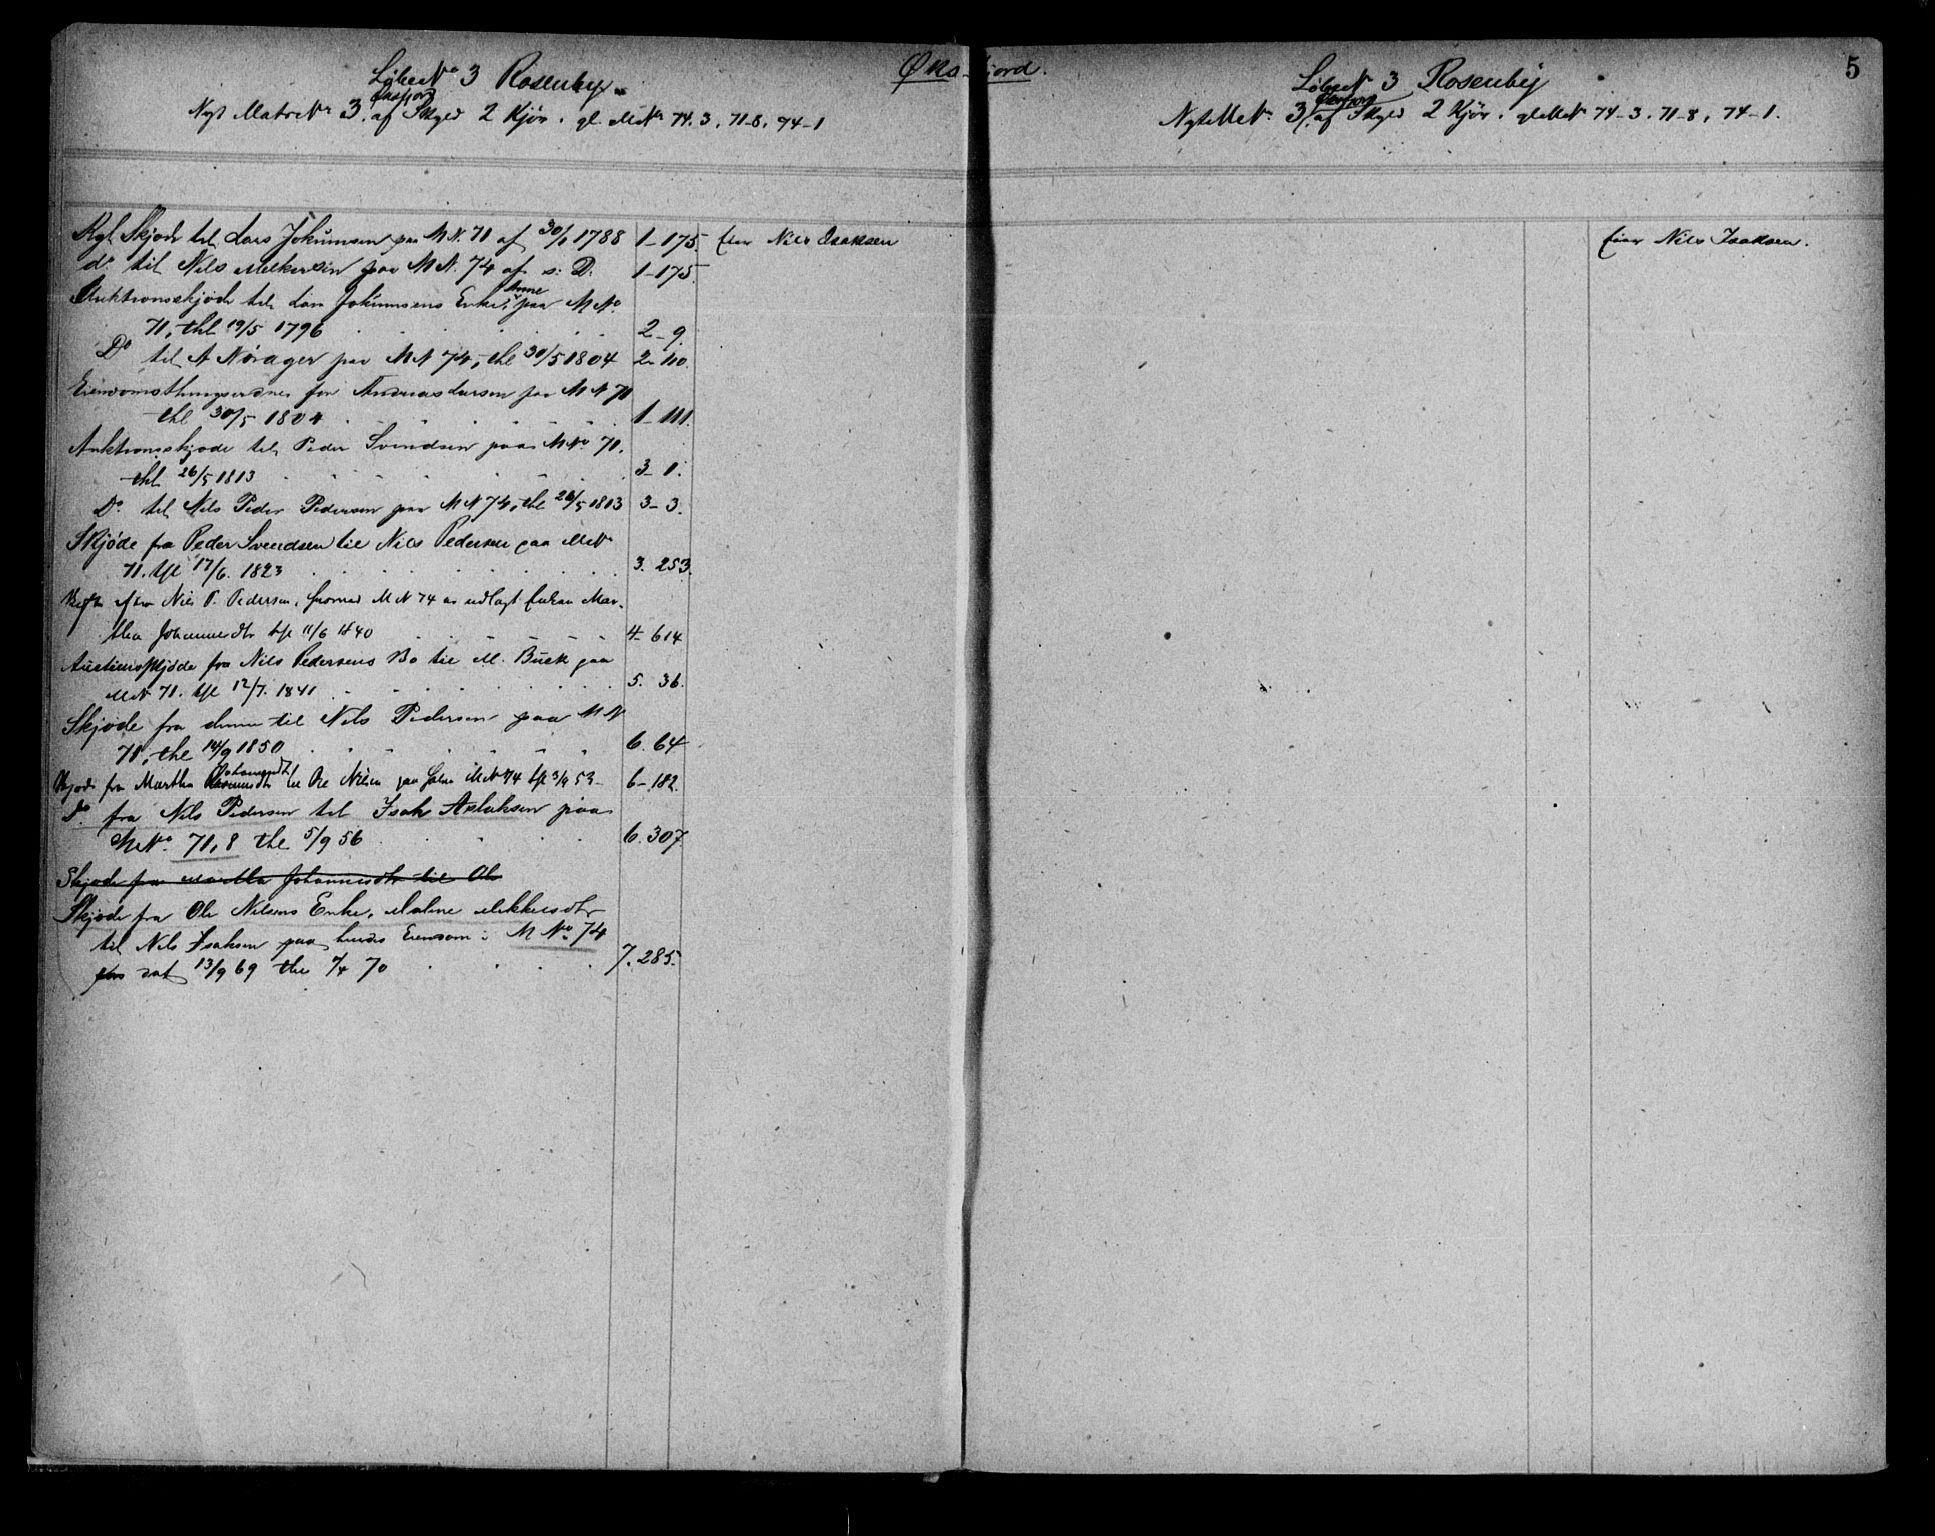 Øksfjord.
LøbeNo 3 Rosenby
Nyt MatrNr 3, af Skyld 2 Kjör. gl. MNr 74.3, 71-8, 74-1
Kgl Skjøde til Lars Jokumsen paa MN. 71 af 30/1 1788 1-175. Eier Nils Isaksen
do. til Nils Melkersen paa MN. 74 af s: D. 1-175
Auktionsskjøde til Lars Jokumsens Enke, Anne paa MNo.
71, thl 19/5 1796 2-9.
Do til A Nørager paa MN 74, thl 30/5 1804 2-110.
for Andreas Larsen paa MN 71
thl 30/5 1804 1-111.
Auktionsskjøde til Peder Svendsen paa MNo. 71.
thl 26/5 1813 3-1.
Do. til Nils Peder Pedersen paa MN 74, thl 26/5 1813 3-3.
Skjøde fra Peder Svendsen til Nils Pedersen paa MNr
71. thl 17/6. 1823 3. 253.
Skifte efter Nils P. Pedersen, hvorved MN 74 er udlagt Enken Mar-
tha Johannesdtr thl 11/6 1840 4-614
Auctionsskjøde fra Nils Pedersens Bo til M. Buck paa
MN 71. thl 12/7. 1841 5. 36.
Skjøde fra denne til Nils Pedersen paa MN
71, thl 14/9 1850 6. 64
Skjøde fra Martha Johannesdtr til Ole Nilsen paa MN 74 thl 3/9 53 6-182.
Do. fra Nils Pedersen til Isak Aslaksen paa
MNo. 71,8 thl 5/9 56 6. 307.
Skjøde fra Martha Johannesdtr til Ole
Skjøde fra Ole Nilsens Enke, Malene Mikkelsdtr
til Nils Isaksen paa hendes Eiendom i MNo. 74
dat 13/9 69 thl 7/4 70 7. 285.
5
LøbeNr 3 Rosenby
Nyt MNr. 3, af Skyld 2 Kjör. gl MNr 74-3. 71-8, 74-1.
Eier Nils Isaksen.